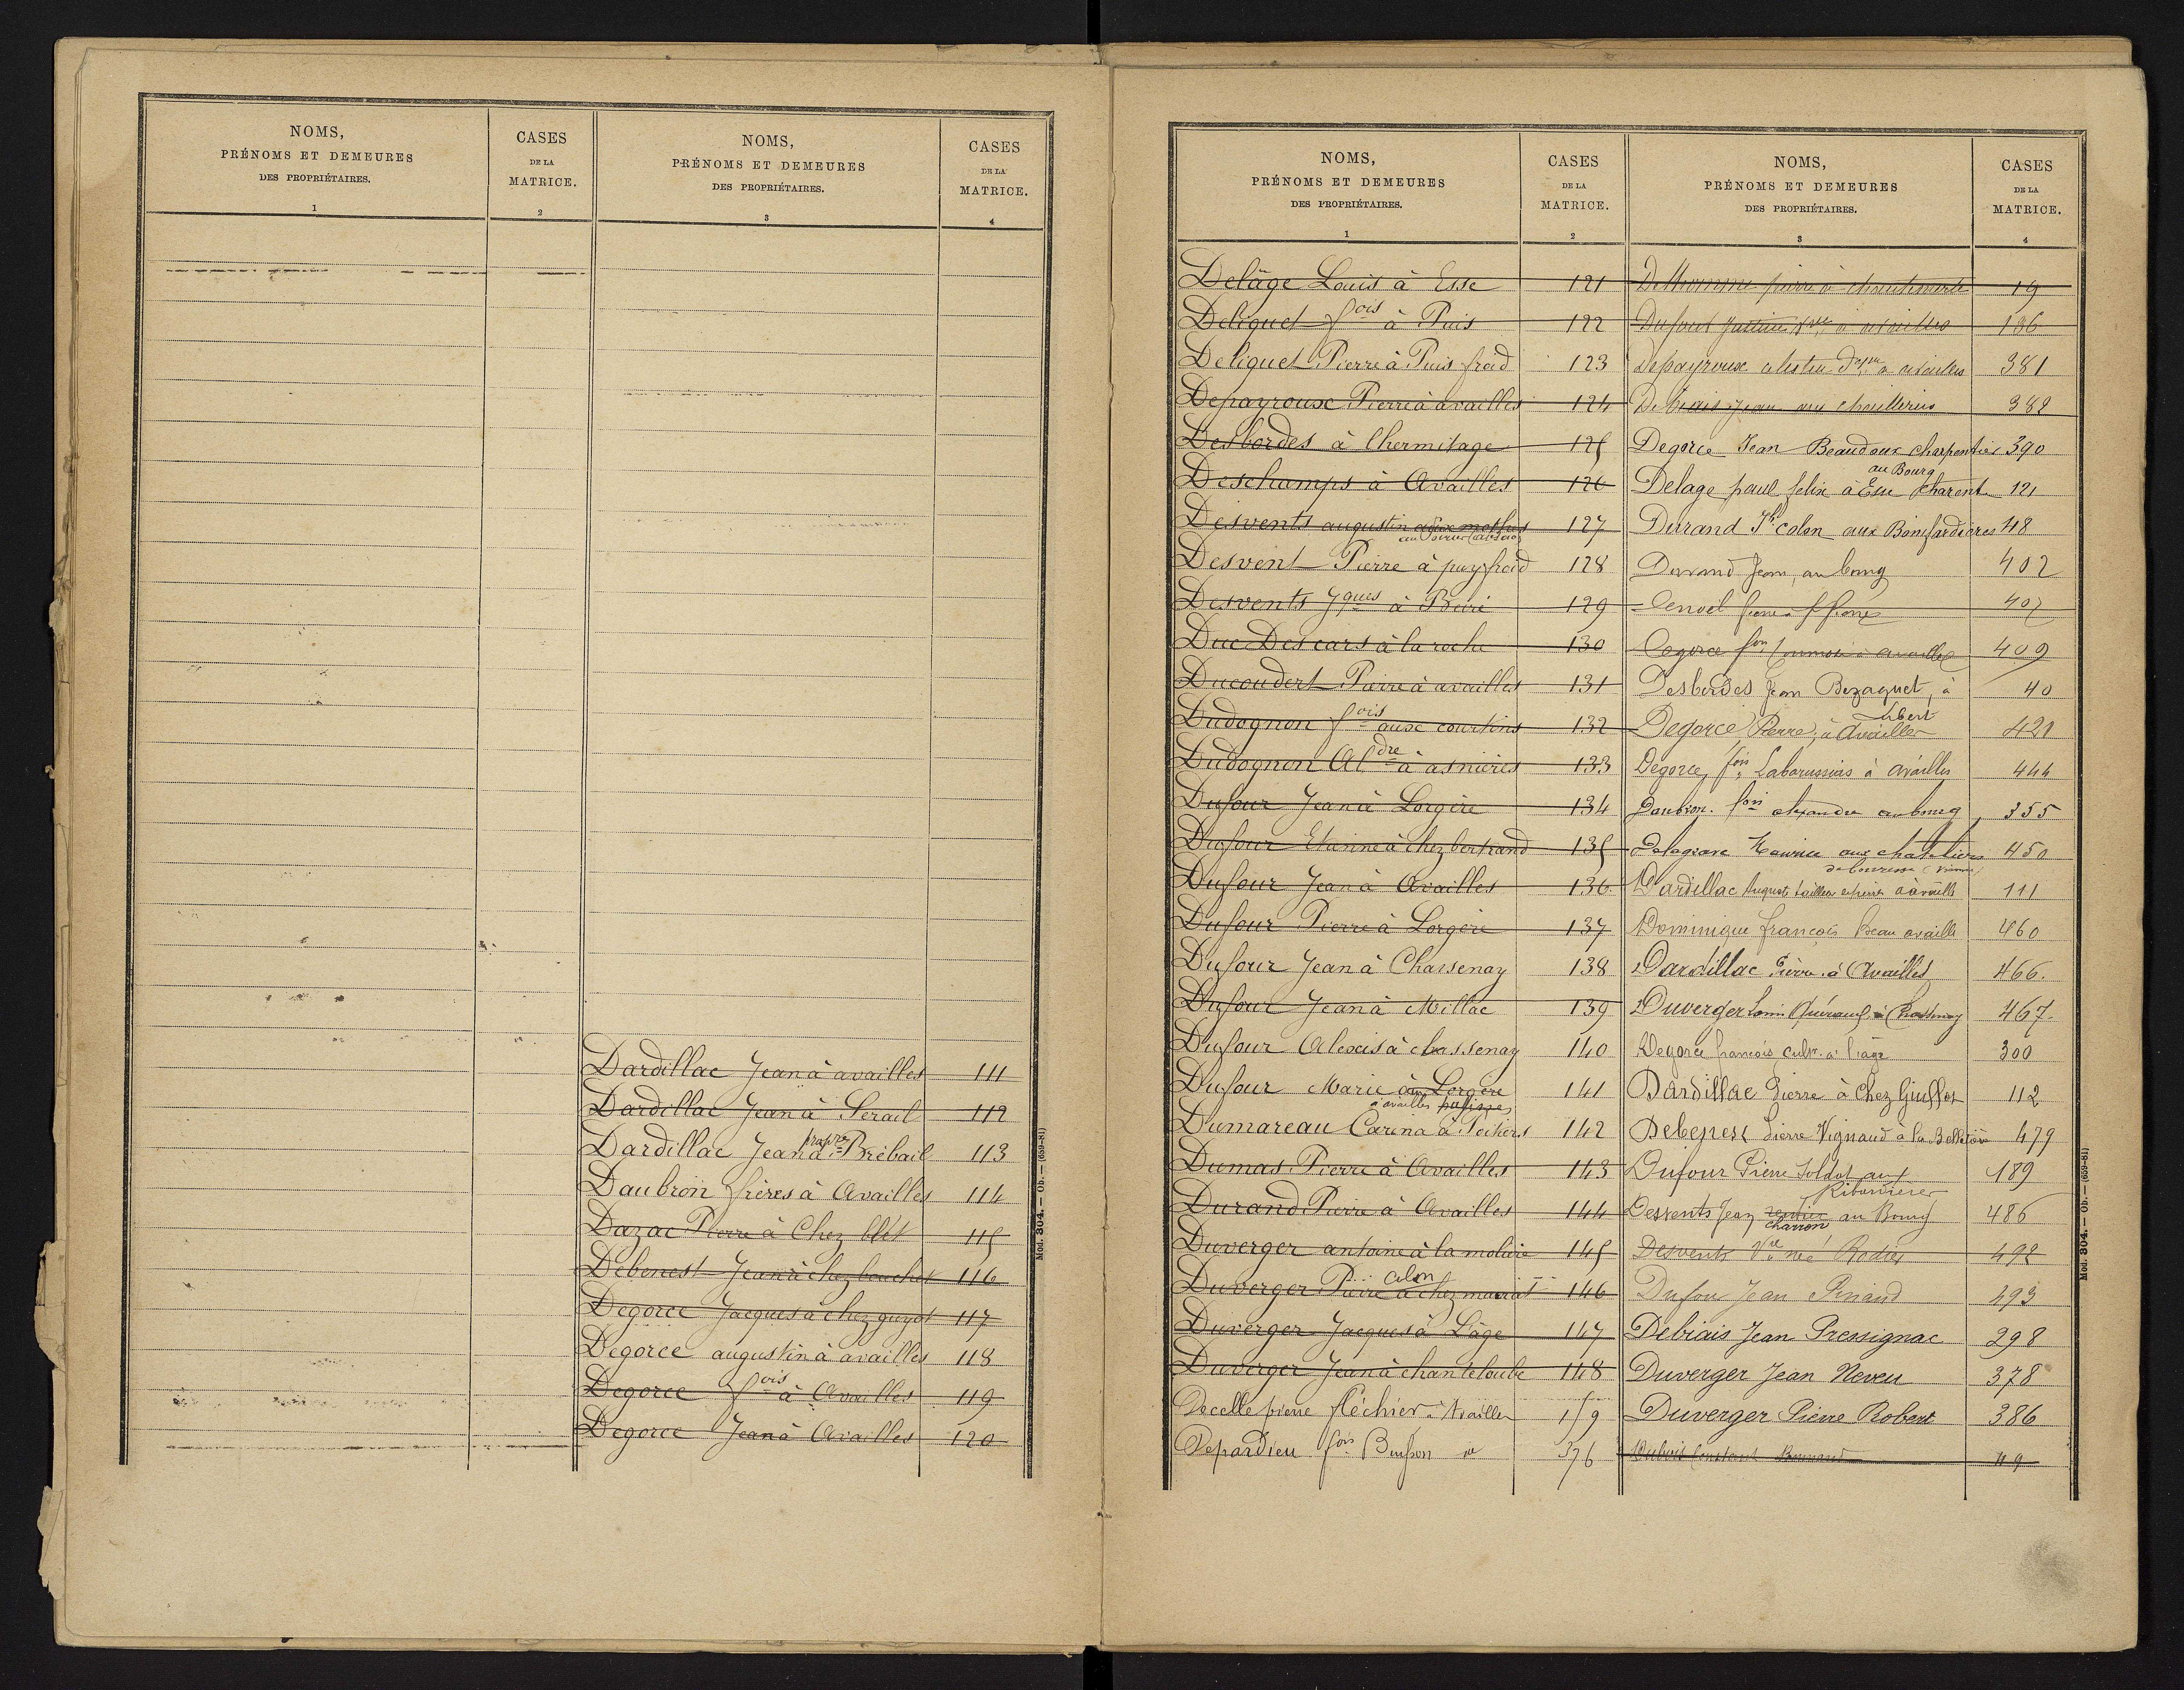 NOMS,
PRÉNOMS ET DEMEURES
DES PROPRIÉTAIRES.
1
CASES
DE LA
MATRICE.
2
NOMS,
PRÉNOMS ET DEMEURES
DES PROPRIÉTAIRES.
3
CASES
DE LA
MATRICE.
4
Dardillac Jean à availles 111
Dardillac Jean à Serail 112
Dardillac Jean à Brébail 113
Daubron frères à Availles 114
Dazac Pierre à Chez blét 115
Debenest Jean à chez bouchet 116
Degorce Jacques à chez guyot 117
Degorce augustin à availles 118
Degorce fois à Availles 119
Degorce Jean à Availles 120
Mod. 304. — Ob. — (659-81)
NOMS,
PRÉNOMS ET DEMEURES
DES PROPRIÉTAIRES.
1
CASES
DE LA
MATRICE.
2
Delâge Louis à Esse 121
Deliquet fois à Puis 122
Deliquet Pierre à Puis froid 123
Depayroux Pierre à availles 124
Desbordes à l'hermitage 125
Deschamps à Availles 126
Desvents augustin 127
Desvent Pierre à puy froid 128
Desvents Jques à Beiré 129
Duc Descars à la roche 130
Ducoudert Pierre à availles 131
Dudognon fois aux courtins 132
Dudognon Aldre à asnières 133
Dufour Jean à Lorgère 134
Dufour Etienne à chez bertrand 135
Dufour Jean à Availles 136
Dufour Pierre à Lorgère 137
Dufour Jean à Chassenay 138
Dufour Jean à Millac 139
Dufour Alexis à chassenay 140
Dufour Marie à Lorgère 141
à availles
Dumareau Carina à Poitiers 142
Dumas Pierre à Availles 143
Durand Pierre à Availles 144
Duverger antoine à la molière 145
colon
Duverger Pierre à chez mairat 146
Duverger Jacques à Lâge 147
Duverger Jean à chanteloube 148
Decelle pierre fléchier à Availles 159
Depardieu fois Buisson 376
NOMS,
PRÉNOMS ET DEMEURES
DES PROPRIÉTAIRES.
3
CASES
DE LA
MATRICE.
4
19
Dufour Justine à availles 136
Depayroux à availles 381
Debiais Jean aux 382
Degorce Jean Beaudoux charpentier 390
au Bourg
Delage paul felix à Esse Charente 121
Durand Jh colon aux Bonifardières 48
Durand Jean, au bourg 402
407
Degorce fois à availles 409
Desbordes Jean Bezaguet, à 40
Libert
Degorce Pierre, à Availles 421
Degorce, fois Labarussias à availles 444
Daubron fois alexandre au bourg 355
Delagrave Maurice aux chateliers 450
Dardillac Auguste tailleur à availle 111
Dominique françois availle 460
Dardillac Pierre à Availles 466.
Duverger Louis à Chassenay 467.
Degorce françois cultr. à l'age 300
Dardillac Pierre à Chez Guillot 112
Debenest Pierre Vignaud à la 479
Dufour Pierre Soldat aux 189
Ribannières
Desvents Jean rentier au Bourg 486
charron
Desvents Vve née Rodier 492
Dufour Jean Pinaud 293
Debiais Jean Pressignac 298
Duverger Jean Neveu 378
Duverger Pierre Robert 386
Dubois Constant 49
Mod. 304. — Ob. — (659-81)